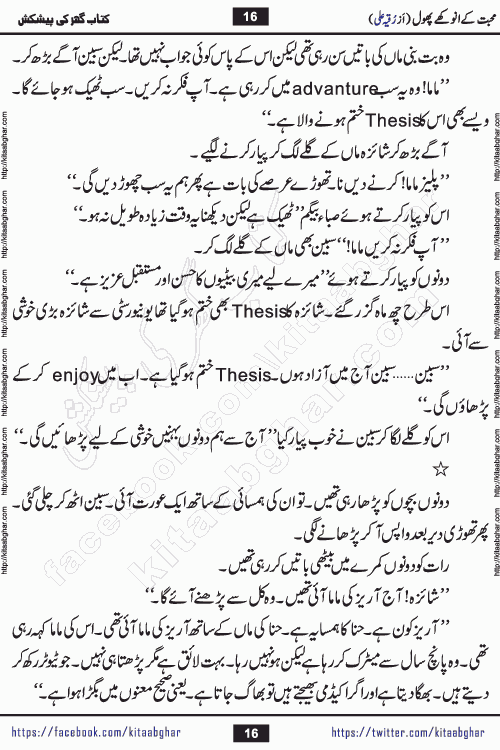 محبت کے انوکھے پھول (از رقیہ علی)
16
کتاب گھر کی پیشکش
وہ بت بنی ماں کی باتیں سن رہی تھی لیکن اس کے پاس کوئی جواب نہیں تھا۔ لیکن سبین آگے بڑھ کر۔
’’ماما! وہ یہ سب advanture میں کر رہی ہے۔ آپ فکر نہ کریں۔ سب ٹھیک ہو جائے گا۔
ویسے بھی اس کا Thesis ختم ہونے والا ہے۔‘‘
آگے بڑھ کر شائزہ ماں کے گلے لگ کر پیار کرنے لگیے۔
’’پلیز ماما! کرنے دیں نا۔ تھوڑے عرصے کی بات ہے پھر ہم یہ سب چھوڑ دیں گی۔‘‘
اس کو پیار کرتے ہوئے صباء بیگم ’’ٹھیک ہے لیکن دیکھنا یہ وقت زیادہ طویل نہ ہو۔‘‘
’’آپ فکر نہ کریں ماما!‘‘ سبین بھی ماں کے گلے لگ کر۔
دونوں کو پیار کرتے ہوئے ’’میرے لیے میری بیٹیوں کا حسن اور مستقبل عزیز ہے۔‘‘
اس طرح چھ ماہ گزر گئے۔ شائزہ کا Thesis بھی ختم ہو گیا تھا یونیورسٹی سے شائزہ بڑی خوشی
سے آئی۔
’’سبین......سبین آج میں آزاد ہوں۔ Thesis ختم ہو گیا ہے۔ اب میں enjoy کر کے
پڑھاؤں گی۔‘‘
اس کو گلے لگا کر سبین نے خوب پیار کیا ’’آج سے ہم دونوں بہنیں خوشی کے لیے پڑھائیں گی۔‘‘
☆
دونوں بچوں کو پڑھا رہی تھیں۔ تو ان کی ہمسائی کے ساتھ ایک عورت آئی۔ سبین اٹھ کر چلی گئی۔
پھر تھوڑی دیر بعد واپس آ کر پڑھانے لگی۔
رات کو دونوں کمرے میں بیٹھی باتیں کر رہی تھیں۔
’’شائزہ! آج آریز کی ماما آئی تھیں۔ وہ کل سے پڑھنے آئے گا۔‘‘
’’آریز کون ہے۔ حنا کا ہمسایہ ہے۔ حنا کی ماں کے ساتھ آریز کی ماما آئی تھی۔ اس کی ماما کہہ رہی
تھی۔ وہ پانچ سال سے میٹرک کر رہا ہے لیکن ہو نہیں رہا۔ بہت لائق ہے مگر پڑھتا ہی نہیں۔ جو ٹیوٹر رکھ کر
دیتے ہیں۔ بھگا دیتا ہے اور اگر اکیڈمی بھیجتے ہیں تو بھاگ جاتا ہے۔ یعنی صحیح معنوں میں بگڑا ہوا ہے۔‘‘
http://kitaabghar.com http://kitaabghar.com http://kitaabghar.com http://kitaabghar.com
http://kitaabghar.com http://kitaabghar.com http://kitaabghar.com http://kitaabghar.com
کتاب گھر کی پیشکش
facebook.com/kitaabghar
kitaabghar.com
https://facebook.com/kitaabghar
16
https://twitter.com/kitaabghar